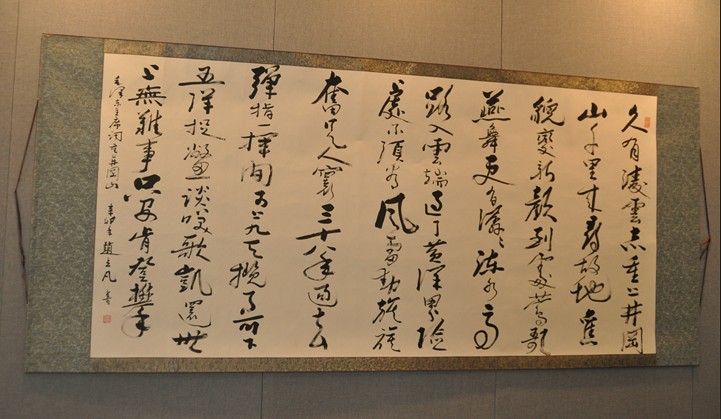 久有淩雲志重上井岡
山千里来尋故地舊
貌變新顏到處鶯歌
燕舞更有潺潺流水高
路入雲端过了黄洋界險
處不須看風雷動旌旗
奮是人寰三十八年過去
彈指一揮間可上九天攬月可下
五洋捉鱉談笑歌凱還世
上無難事只要肯登攀
毛澤东主席词重上井岡山 趙立凡 書